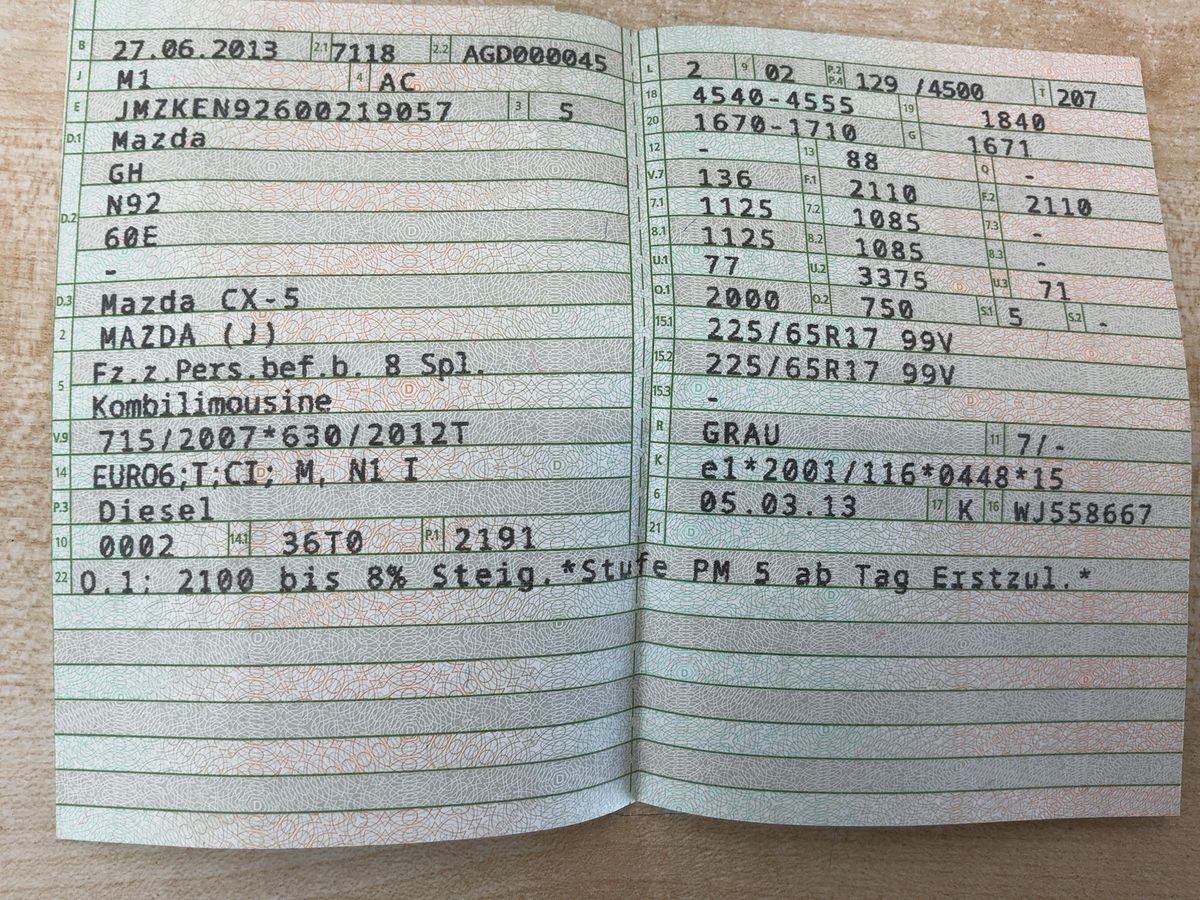 B 27.06.2013 2.1 7118 2.2 AGD000045
J M1 4 AC
E JMZKEN92600219057 3 5
D.1 Mazda
GH
D.2 N92
60E
-
D.3 Mazda CX-5
2 MAZDA (J)
5 Fz.z.Pers.bef.b. 8 Spl.
Kombilimousine
V.9 715/2007*630/2012T
14 EURO6;T;CI; M, N1 I
P.3 Diesel
10 0002 14.1 36T0 P.1 2191
L 2 9 02 P.2 P.4 129 /4500 T 207
18 4540-4555 19 1840
20 1670-1710 G 1671
12 - 13 88 Q -
V.7 136 F.1 2110 F.2 2110
7.1 1125 7.2 1085 7.3 -
8.1 1125 8.2 1085 8.3 -
U.1 77 U.2 3375 U.3 71
O.1 2000 O.2 750 S.1 5 S.2 -
15.1 225/65R17 99V
15.2 225/65R17 99V
15.3 -
R GRAU 11 7/-
K e1*2001/116*0448*15
6 05.03.13 17 K 16 WJ558667
21
22 O.1: 2100 bis 8% Steig.*Stufe PM 5 ab Tag Erstzul.*